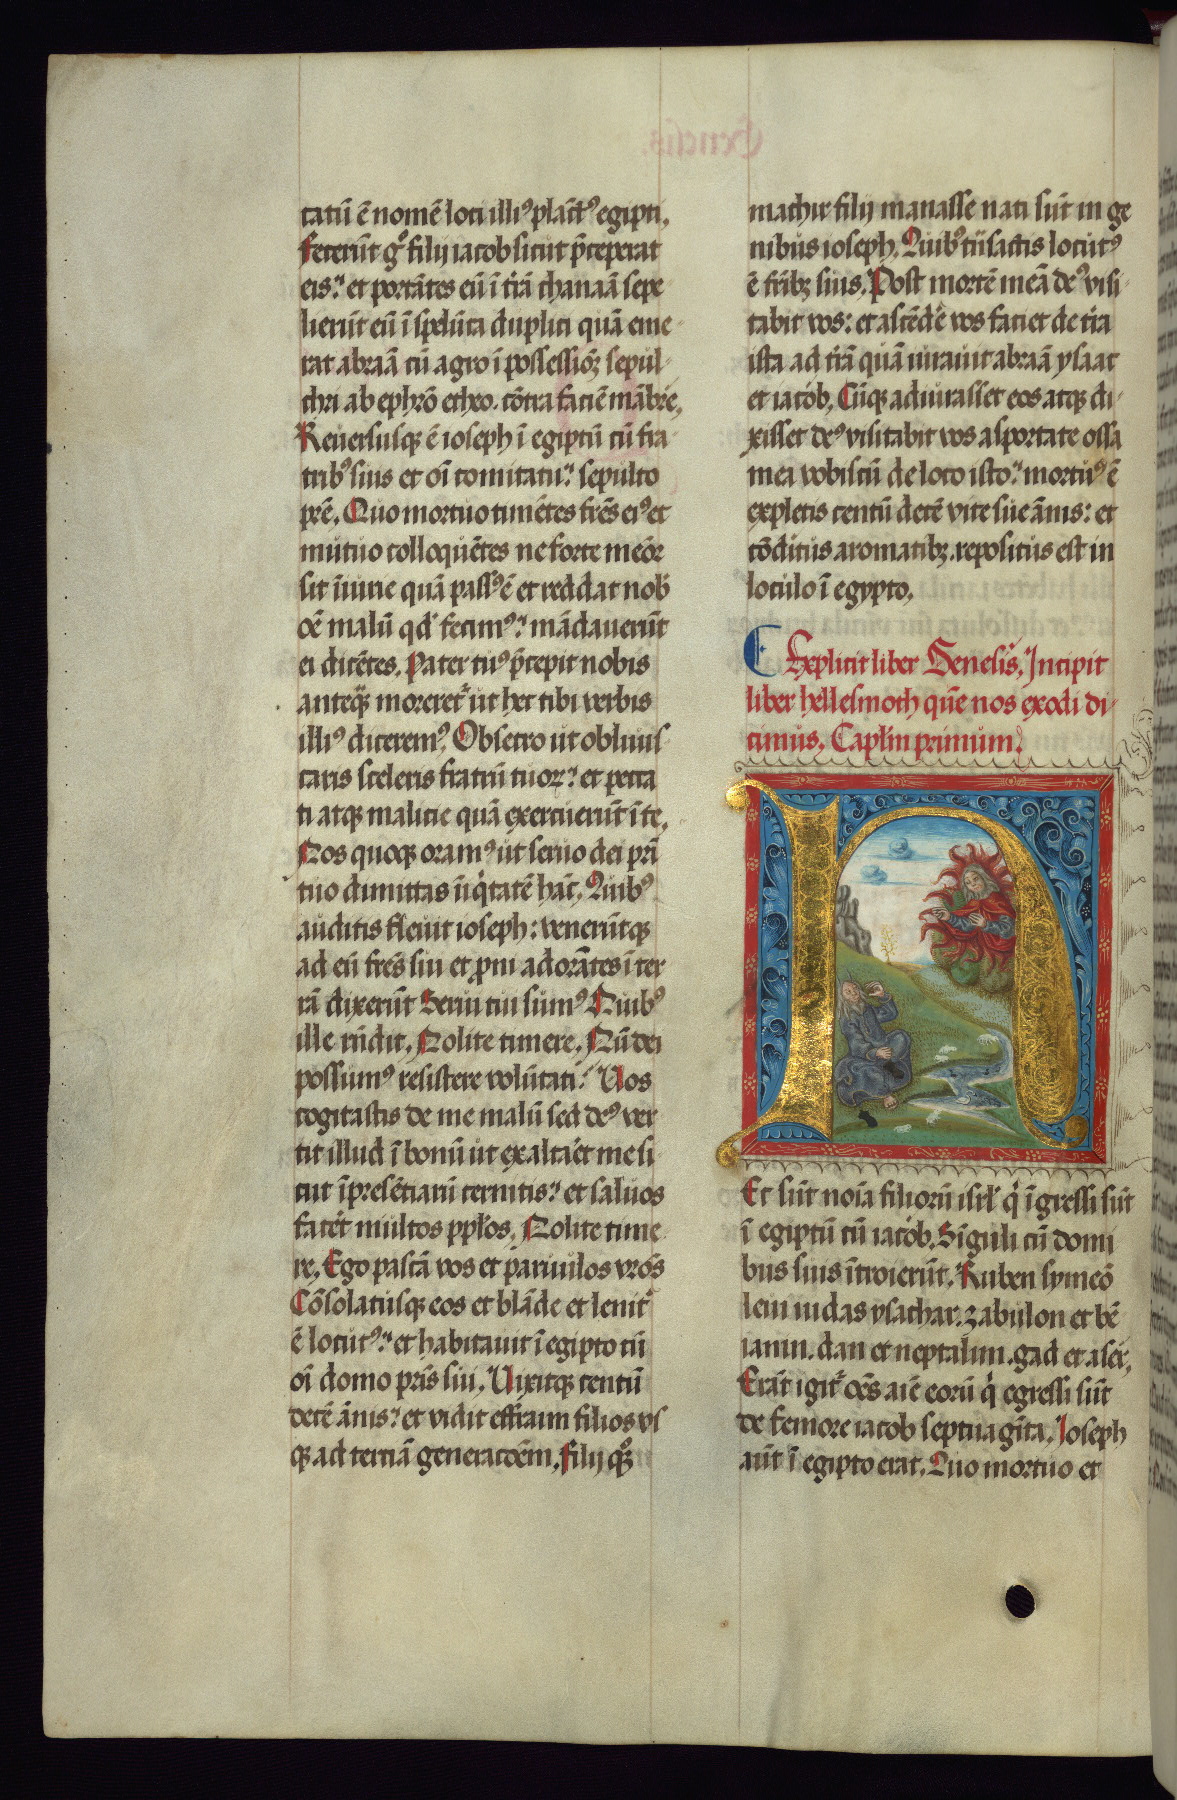 tatū ē nomē loci illiꝰ plāctꝰ egipti.
Fecerūt gͦ filij iacob sicut p̄ceperat
eis: et portātes eū ī t̄rā chanaā sepe
lierūt eū ī spelūca duplici quā eme
rat abraā cū agro ī possessiōꝫ sepul
chri ab ephrō etheo. cōtra faciē mābre.
Reuersusq̄ ē ioseph ī egiptū cū fra
tribꝰ suis et oī comitatu: sepulto
prē. Quo mortuo timētes frēs eiꝰ et
mutuo colloquētes ne forte meōr
sit īiurie quā passꝰ ē et reddat nob̄
oē malū qd̄ fecimꝰ: mādauerūt
ei dicētes. Pater tuꝰ p̄cepit nobis
anteq̄ꝫ moreret̄ ut hec tibi verbis
illiꝰ diceremꝰ. Obsecro ut obliuis
caris sceleris fratrū tuoꝝ: et pecca
ti atq̄ malicie quā exercuerūt ī te.
Nos quoq̄ oramꝰ ut seruo dei pr̄i
tuo dimittas īiq̇tatē hāc. Quibꝰ
auditis fleuit ioseph: venerūtq̄
ad eū frēs sui et ꝓni adorātes ī ter
rā dixerūt Serui tui sumꝰ Quibꝰ
ille rn̄dit. Nolite timere. Nū dei
possumꝰ resistere volūtati: Vos
cogitastis de me malū sed deꝰ ver
tit illud ī bonū ut exalta͛et me si
cut īpresētiarū cernitis: et saluos
face͛t multos pplōs. Nolite time
re. Ego pascā vos et paruulos vr̄os
Cōsolatusq̄ eos et blāde et lenit̄
ē locutꝰ: et habitauit ī egipto cū
oī domo pr̄is sui. Vixitq̄ centū
decē ānis: et vidit effraim filios vs
q̄ ad terciā generacōem. Filij qͦꝫ
machir filij manasse nati sūt in ge
nibus ioseph. Quibꝰ tn̄sactis locutꝰ
ē frībꝫ suis. Post mortē meā deꝰ visi
tabit vos: et ascēde͛ vos faciet de t̄ra
ista ad t̄rā quā iurauit abraā ysaac
et iacob. Cūq̄ adiurasset eos atq̄ di
xisset deꝰ visitabit vos asportate ossa
mea vobiscū de loco isto: mortuꝰ ē
expletis centū decē vite sue ānis: et
cōditus aromatibꝫ. repositus est in
loculo ī egypto.
Explicit liber Genesis. Incipit
liber hellesmoth quē nos exodi di
cimus. Caplm̄ primum.
H
Ec sūt noīa filiorū isrl̄ q̇ īgressi sūt
ī egiptū cū iacob. Sīguli cū domi
bus suis ītroierūt. Ruben symeō
leui iudas ysachar. zabulon et bē
iamin. dan et neptalim. gad et aser.
Erāt igit̄ oēs aīe eorū q̇ egressi sūt
de femore iacob septuagīta. Ioseph
aūt ī egipto erat. Quo mortuo et